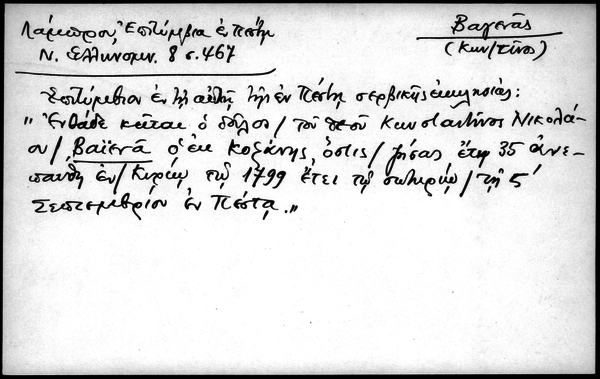 Λάμπρου, Ἐπιτύμβια ἐν Πέστῃ
Ν. Ἑλληνομν. 8 σ. 467
Βαγενᾶς
(Κων/τῖνος)
Ἐπιτύμβιον ἐν τῇ αὐλῇ τῆς ἐν Πέστῃ σερβικῆς ἐκκλησίας:
„ Ἐνθάδε κεῖται ὁ δοῦλος / τοῦ θεοῦ Κωνσταντῖνος Νικολά-
ου / Βαϊενᾶ ὁ ἐκ Κοζάνης, ὅστις / ζήσας ἔτη 35 ἀνε-
παύθη ἐν / Κυρίῳ τῷ 1799 ἔτει τῷ σωτηρίῳ / τῇ 5
Σεπτεμβρίου ἐν Πέστᾳ. „